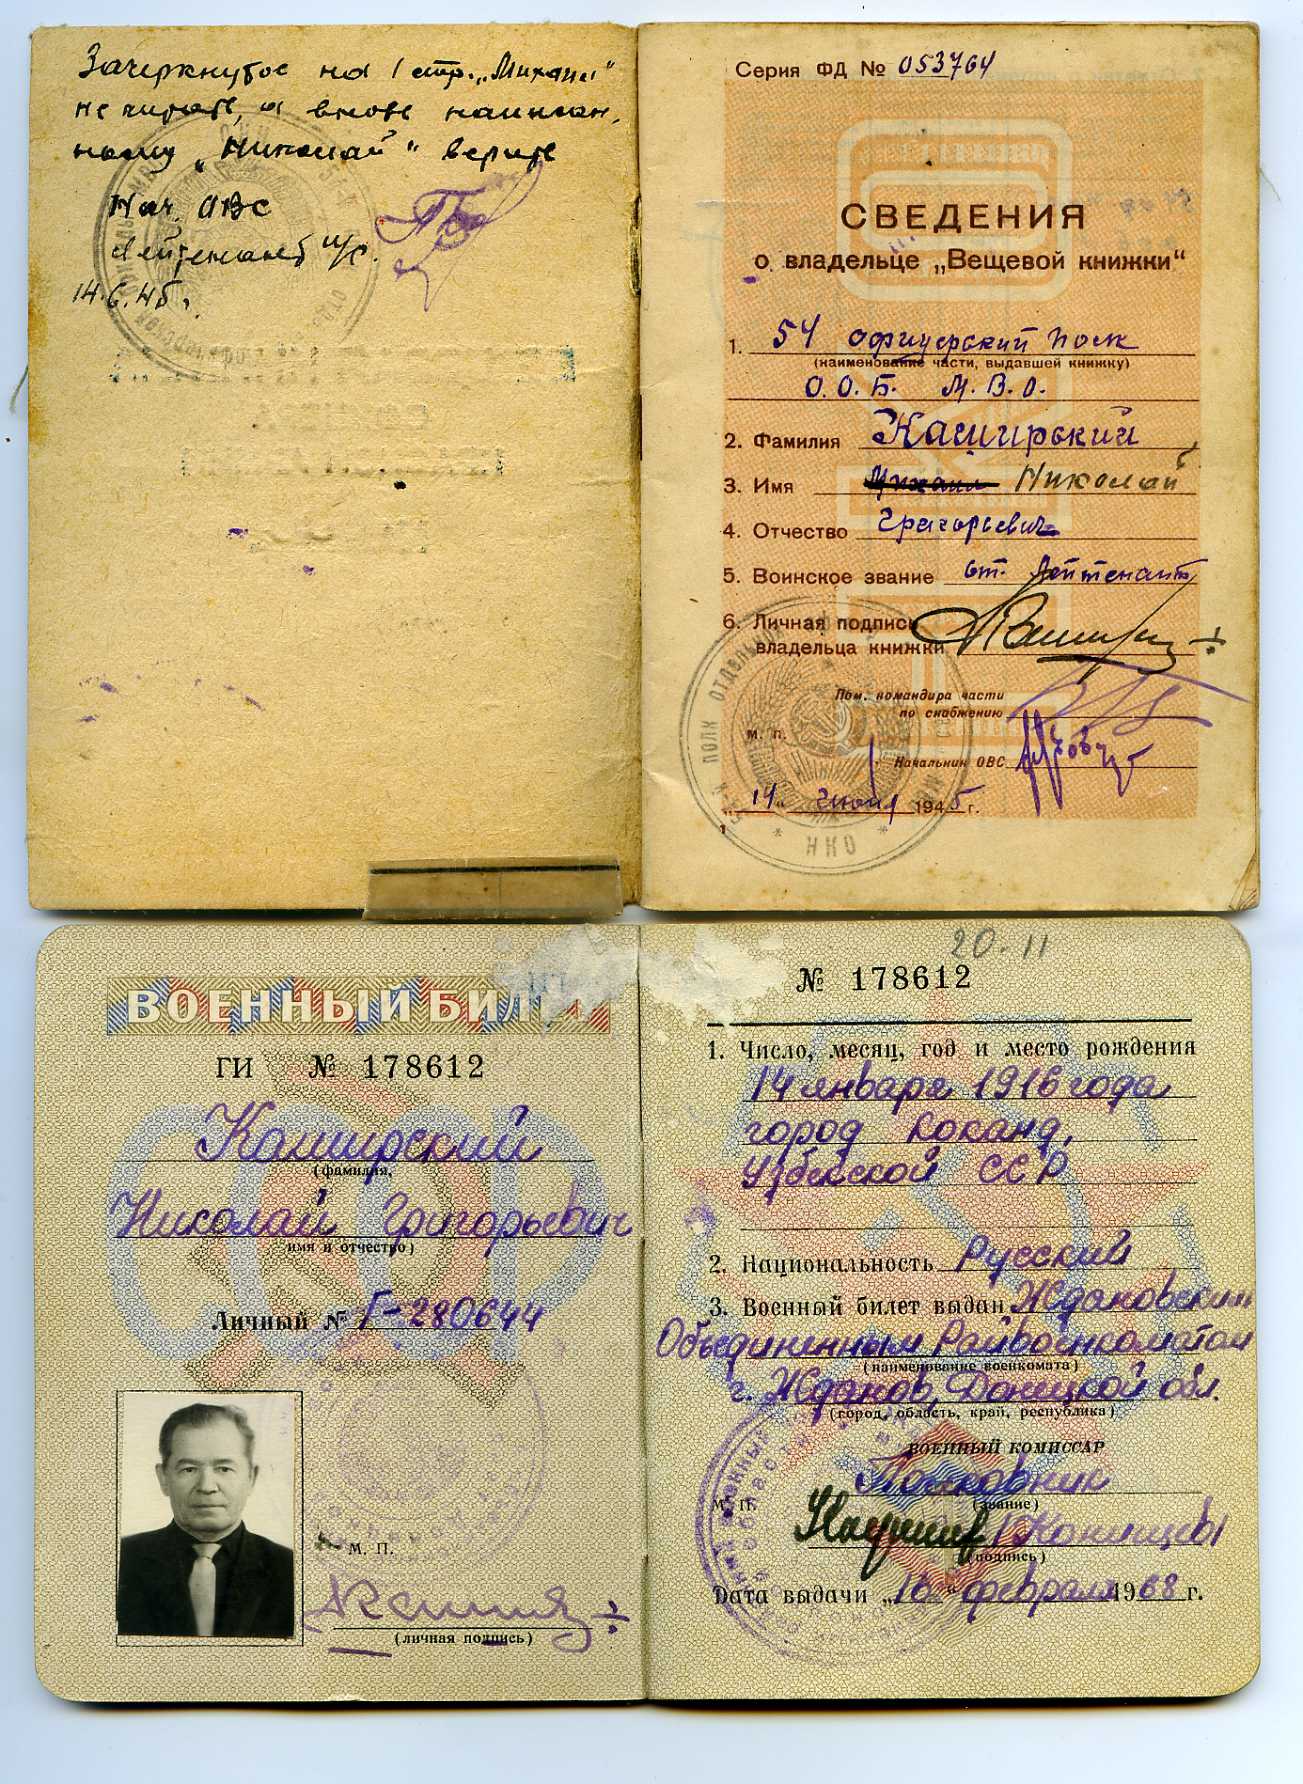 Зачеркнутое на 1 стр. „Михаил"
не читать, а вновь написан.
ному „Николай" верить
Нач. ОВС
Лейтенант и/с.
14.6.45 г.
Серия ФД № 053764
СВЕДЕНИЯ
о владельце „Вещевой книжки"
1. 54 офицерский полк
(наименование части, выдавшей книжку)
О.О.Б. М.В.О.
2. Фамилия Каширский
3. Имя Михаил Николай
4. Отчество Григорьевич
5. Воинское звание ст. Лейтенант
6. Личная подпись
владельца книжки
Пом. командира части
по снабжению
М. П.
Начальник ОВС
„14" июня 1945 г.
1
НКО
ВОЕННЫЙ БИЛЕТ
ГИ № 178612
Каширский
(фамилия,
Николай Григорьевич
имя и отчество)
Личный № Г-280644
М. П.
(личная подпись)
20-11
№ 178612
1. Число, месяц, год и место рождения
14 января 1916 года
город Коканд,
Узбекской ССР
2. Национальность Русский
3. Военный билет выдан Ждановским
Объединенным Райвоенкоматом
(наименование военкомата)
г. Жданов, Донецкой обл.
(город, область, край, республика)
ВОЕННЫЙ КОМИССАР
Полковник
М. П.
(звание)
(подпись)
Дата выдачи „16" февраля 1968 г.